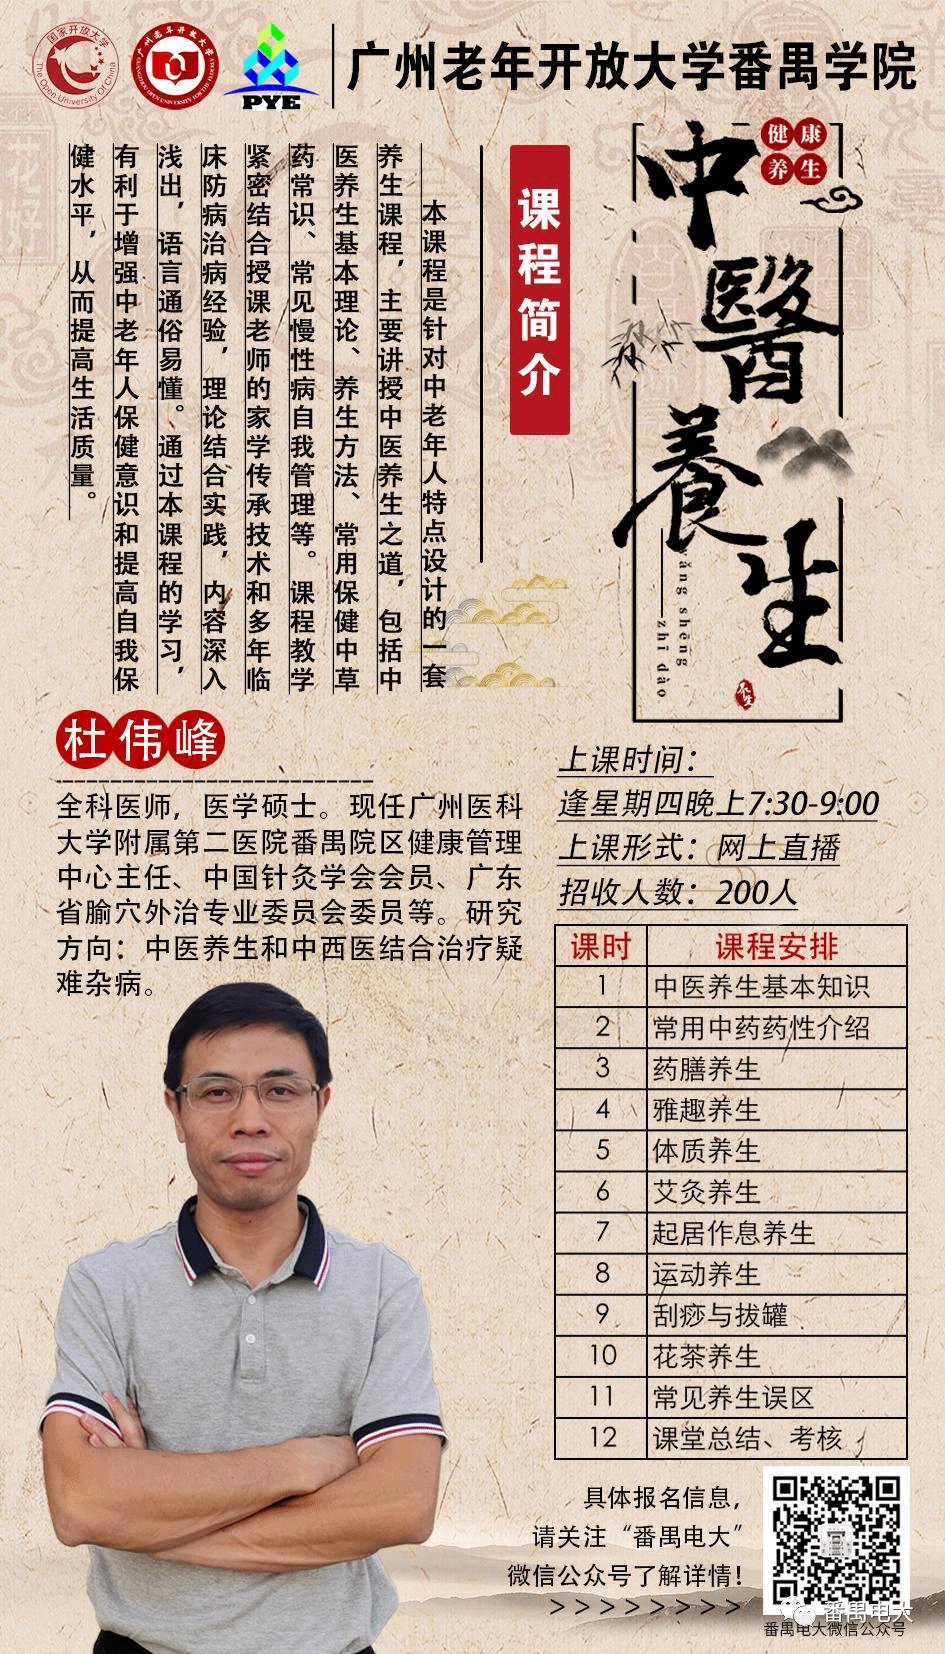 国家开放大学
The Open University Of China
广州老年开放大学
GUANGZHOU OPEN UNIVERSITY FOR THE ELDERLY
PYE
广州老年开放大学番禺学院
健康
养生
中醫養生
yǎng shēng
zhī dào
养生
课程简介
本课程是针对中老年人特点设计的一套
养生课程，主要讲授中医养生之道，包括中
医养生基本理论、养生方法、常用保健中草
药常识、常见慢性病自我管理等。课程教学
紧密结合授课老师的家学传承技术和多年临
床防病治病经验，理论结合实践，内容深入
浅出，语言通俗易懂。通过本课程的学习，
有利于增强中老年人保健意识和提高自我保
健水平，从而提高生活质量。
杜伟峰
全科医师，医学硕士。现任广州医科
大学附属第二医院番禺院区健康管理
中心主任、中国针灸学会会员、广东
省腧穴外治专业委员会委员等。研究
方向：中医养生和中西医结合治疗疑
难杂病。
上课时间：
逢星期四晚上7:30-9:00
上课形式：网上直播
招收人数：200人
课时 课程安排
1 中医养生基本知识
2 常用中药药性介绍
3 药膳养生
4 雅趣养生
5 体质养生
6 艾灸养生
7 起居作息养生
8 运动养生
9 刮痧与拔罐
10 花茶养生
11 常见养生误区
12 课堂总结、考核
具体报名信息，
请关注“番禺电大”
微信公众号了解详情！
>>>>>>>>
番禺电大
番禺电大微信公众号